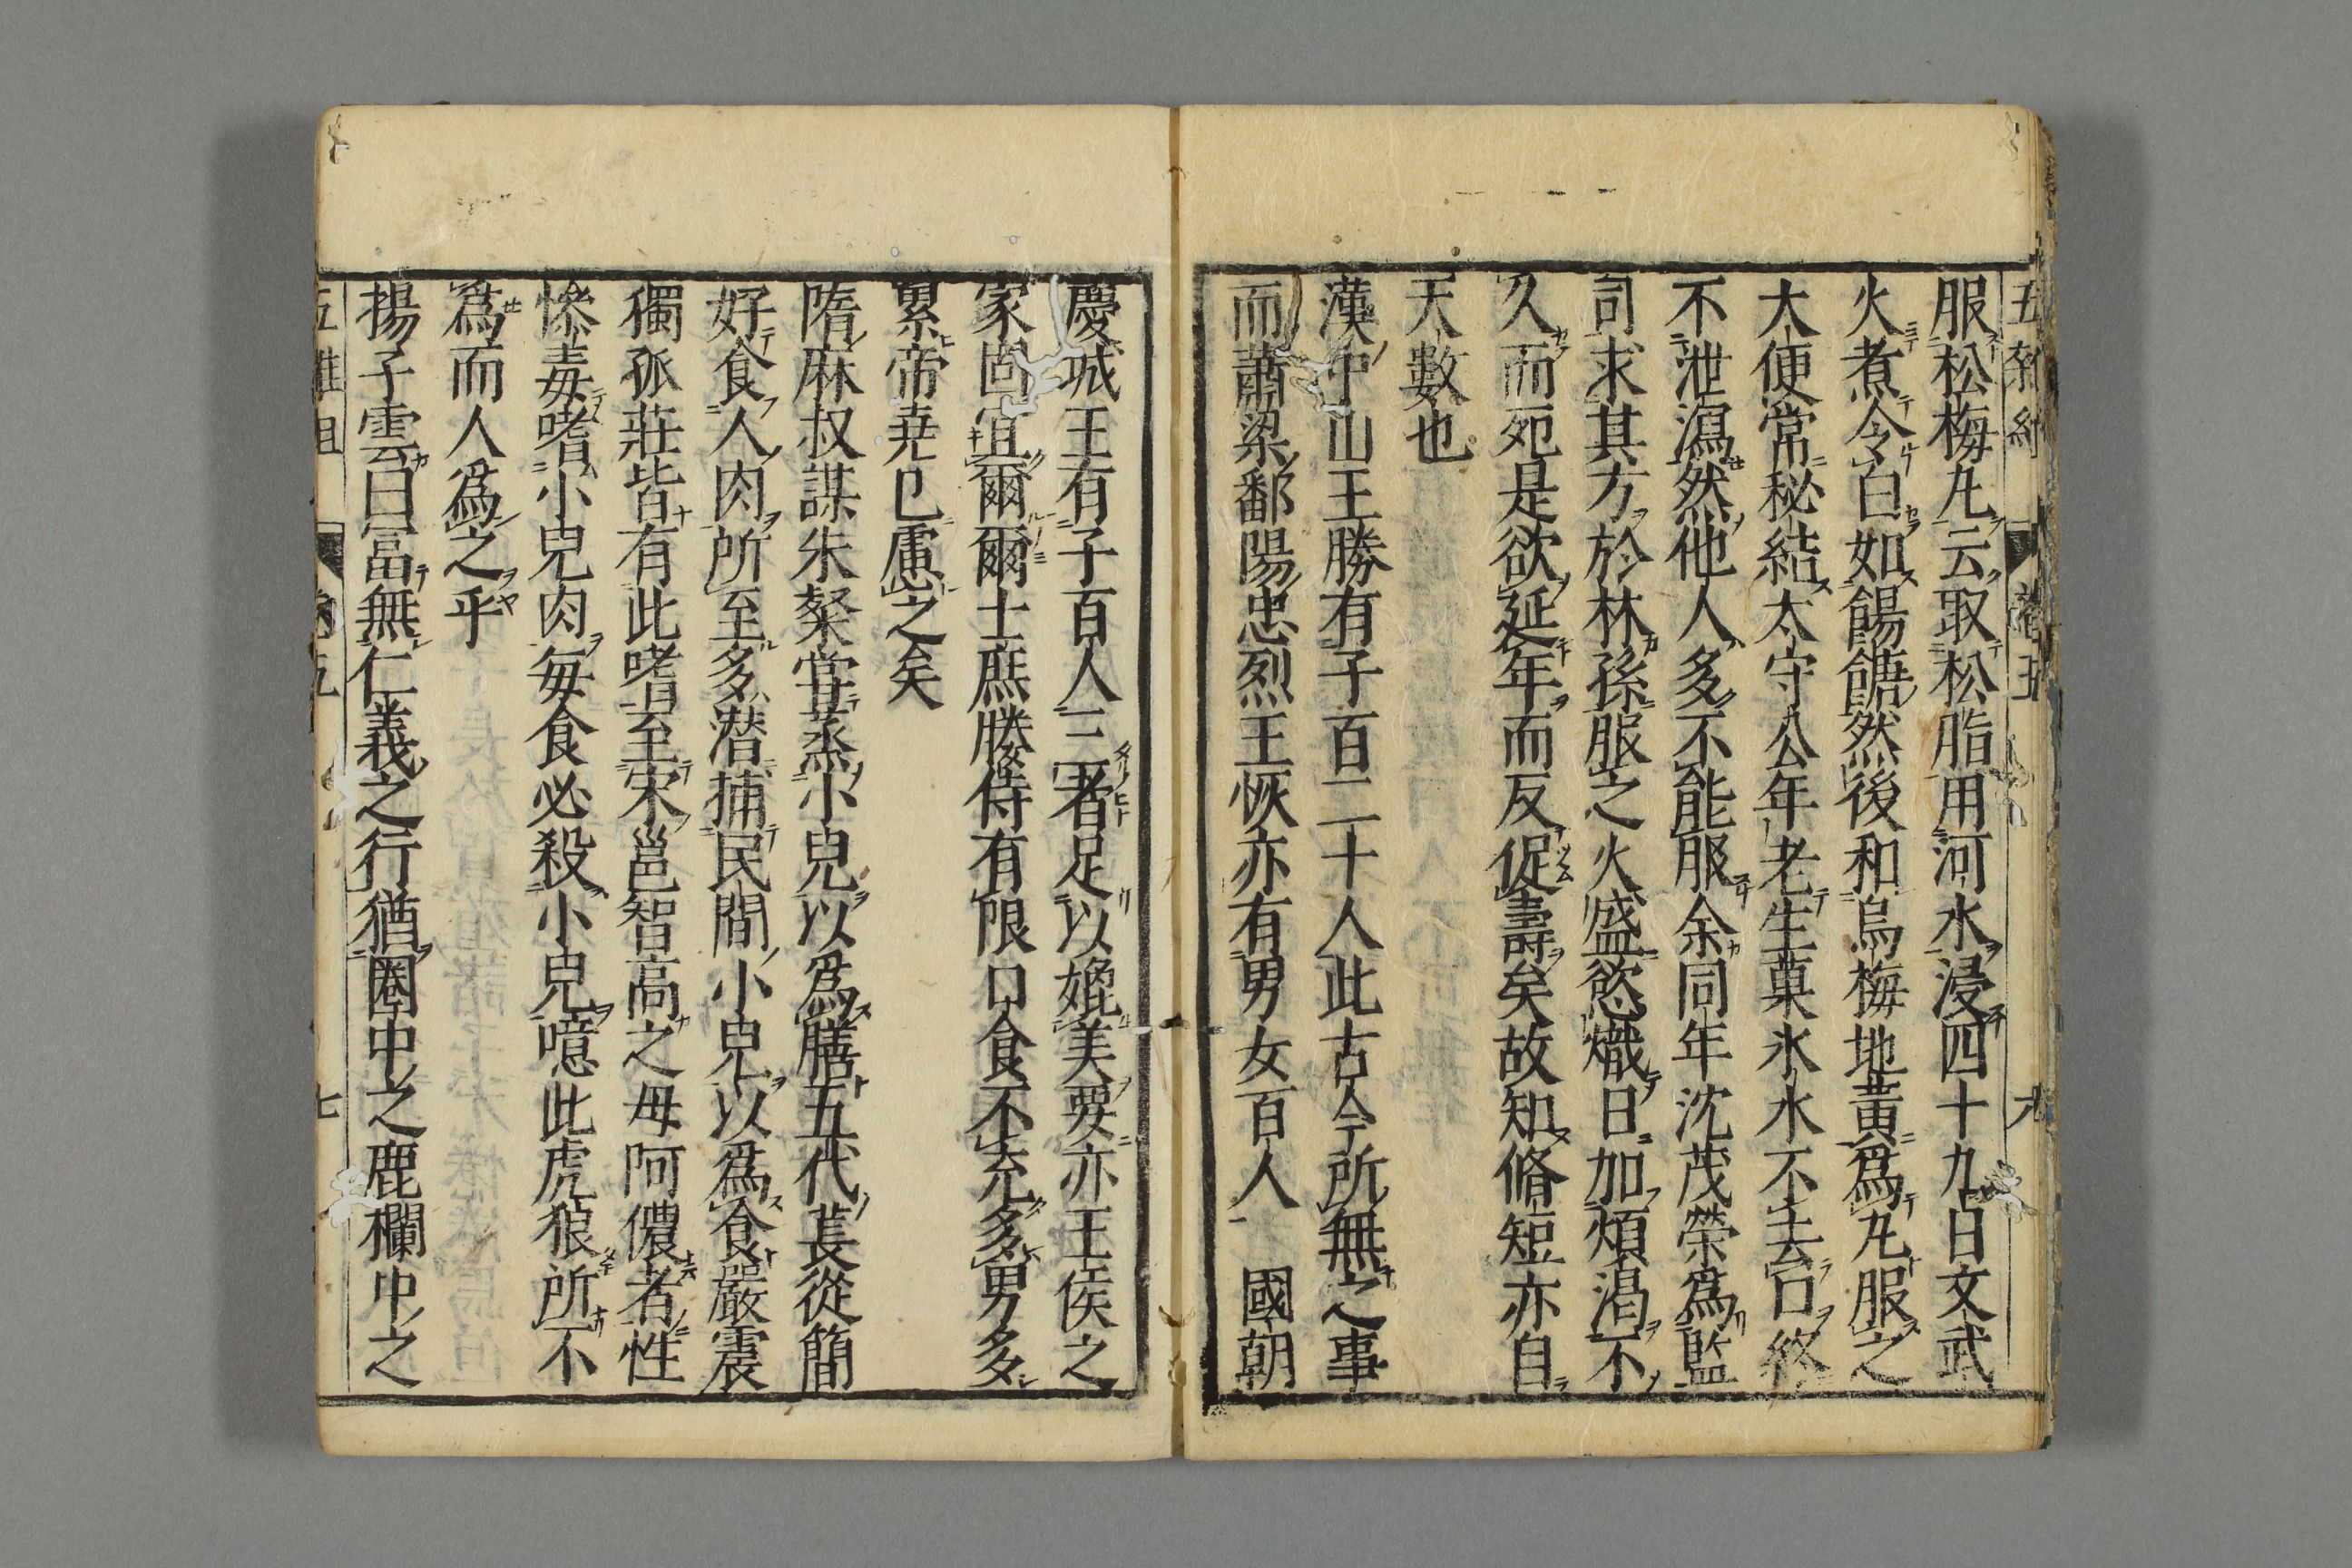 五雑組 卷五 六
服松梅丸云取松脂用河水浸四十九日文武
火煮令白如餳餹然後和烏梅地黃爲丸服之
大便常秘結太守公年老生菓氷水不去口終
不泄瀉然他人多不能服余同年沈茂榮爲監
司求其方於林孫服之火盛慾熾日加煩渴不
久而死是欲延年而反促壽矣故知脩短亦自
天數也
漢中山王勝有子百二十人此古今所無之事
而蕭梁鄱陽忠烈王恢亦有男女百人 國朝
慶城王有子百人三者足以媲美要亦王侯之
家固宜爾爾士庶媵侍有限口食不充多男多
累帝堯已慮之矣
隋麻叔謀朱粲嘗蒸小兒以爲膳五代萇從簡
好食人肉所至多潜捕民間小兒以爲食嚴震
獨孤莊皆有此嗜至宋邕智高之母阿儂者性
慘毒嗜小兒肉毎食必殺小兒噫此虎狼所不
爲而人爲之乎
揚子雲曰冨無仁義之行猶圈中之鹿欄中之
五雜俎 五 七